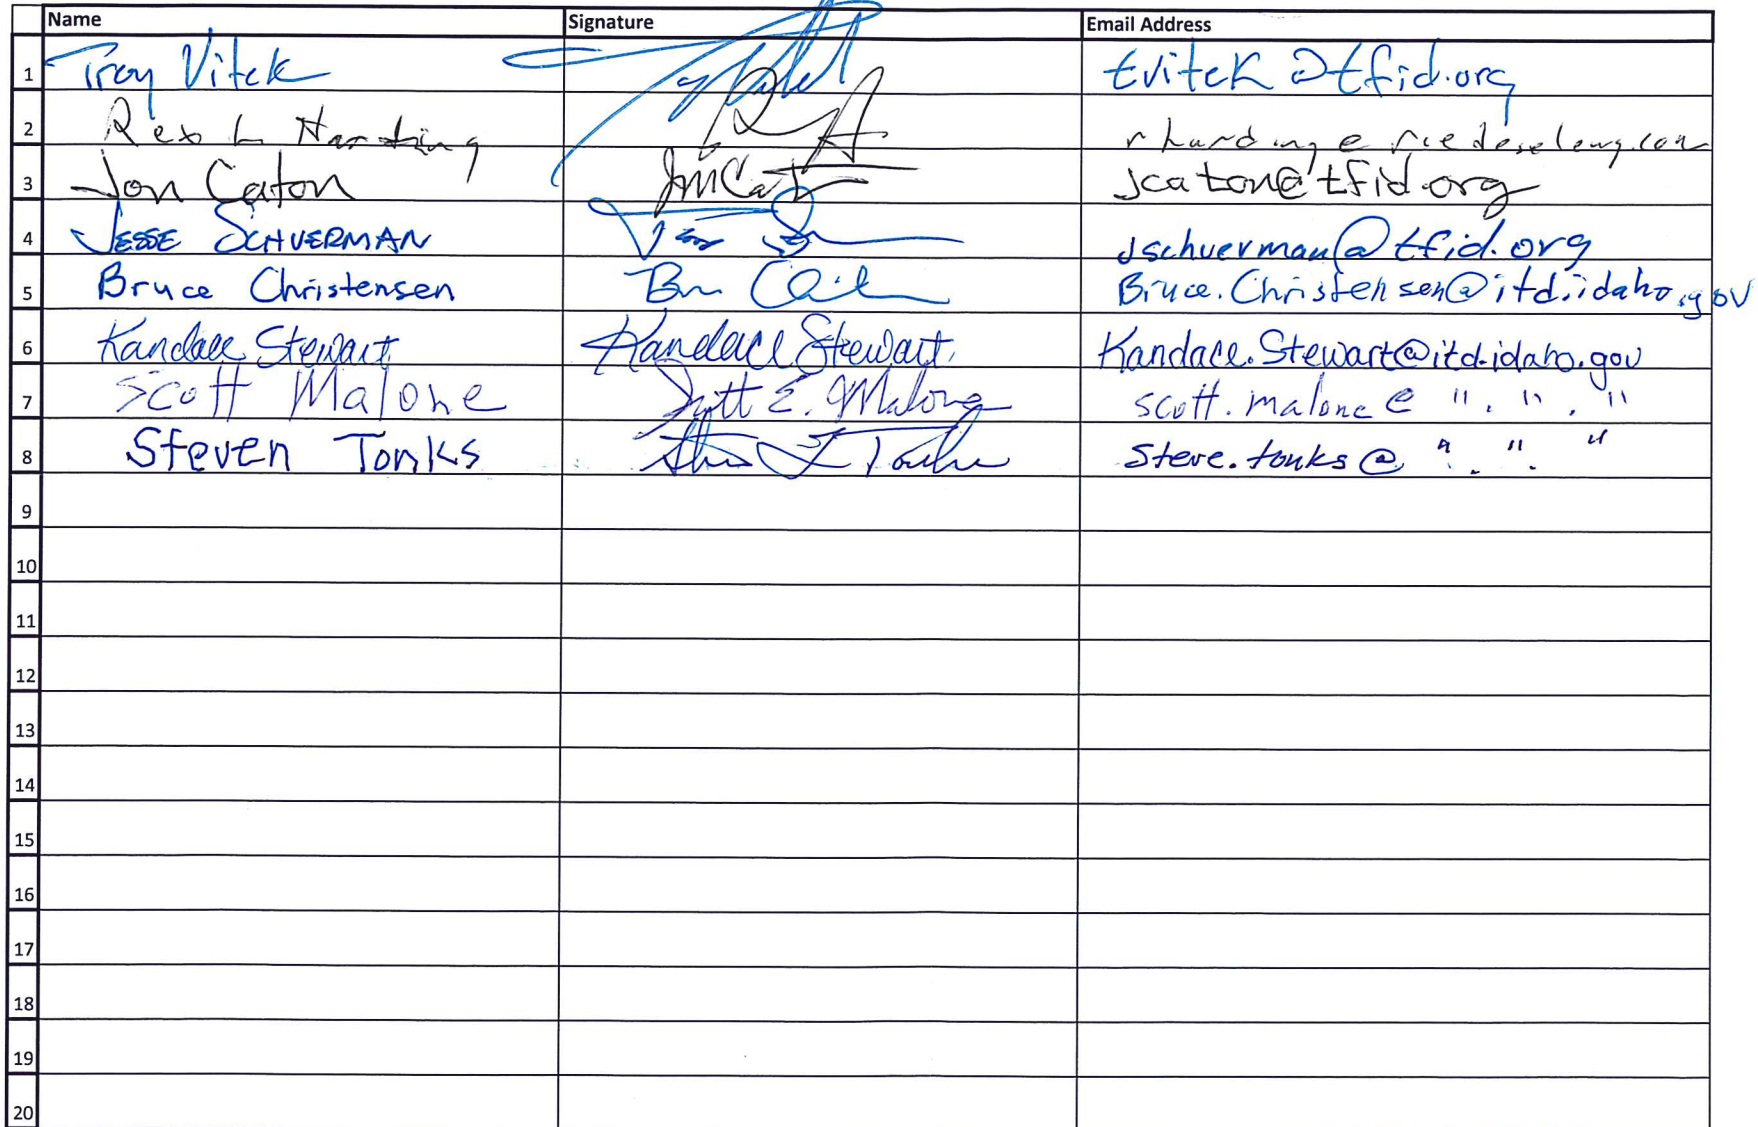 Name Signature Email Address
1 Troy Vitek tvitek@tfid.org
2 Rex L Harding
3 Jon Caton Jon Caton jcaton@tfid.org
4 JESSE SCHUERMAN jschuerman@tfid.org
5 Bruce Christensen Bruce.Christensen@itd.idaho.gov
6 Kandace Stewart Kandace Stewart Kandace.Stewart@itd.idaho.gov
7 Scott Malone Scott E. Malone scott.malone@ ". ". "
8 Steven Tonks steve.tonks@ ". ". "
9
10
11
12
13
14
15
16
17
18
19
20